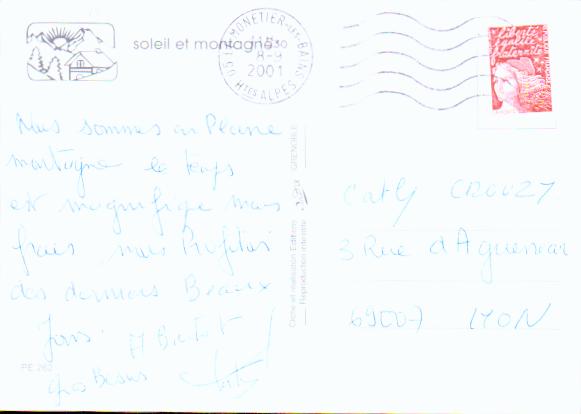 soleil et montagne
LE MONETIER-LES-BAINS
15H30
8-9
2001
05 HTES ALPES
liberté
égalité
fraternité
Nous sommes en Pleine
montagne le temps
est magnifique mais
frais nous Profitons
des derniers Beaux
Jours. A Bientôt
Gros Bisous
PE 262
GRENOBLE
Cliché et réalisation Editions
Reproduction interdite
Cathy CROUZY
3 Rue d'Aguesseau
69007 LYON